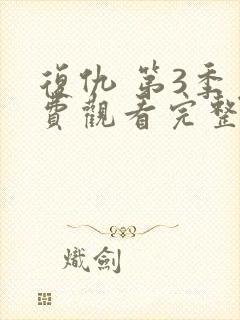 復仇 第3季
費觀看完整
熾劍